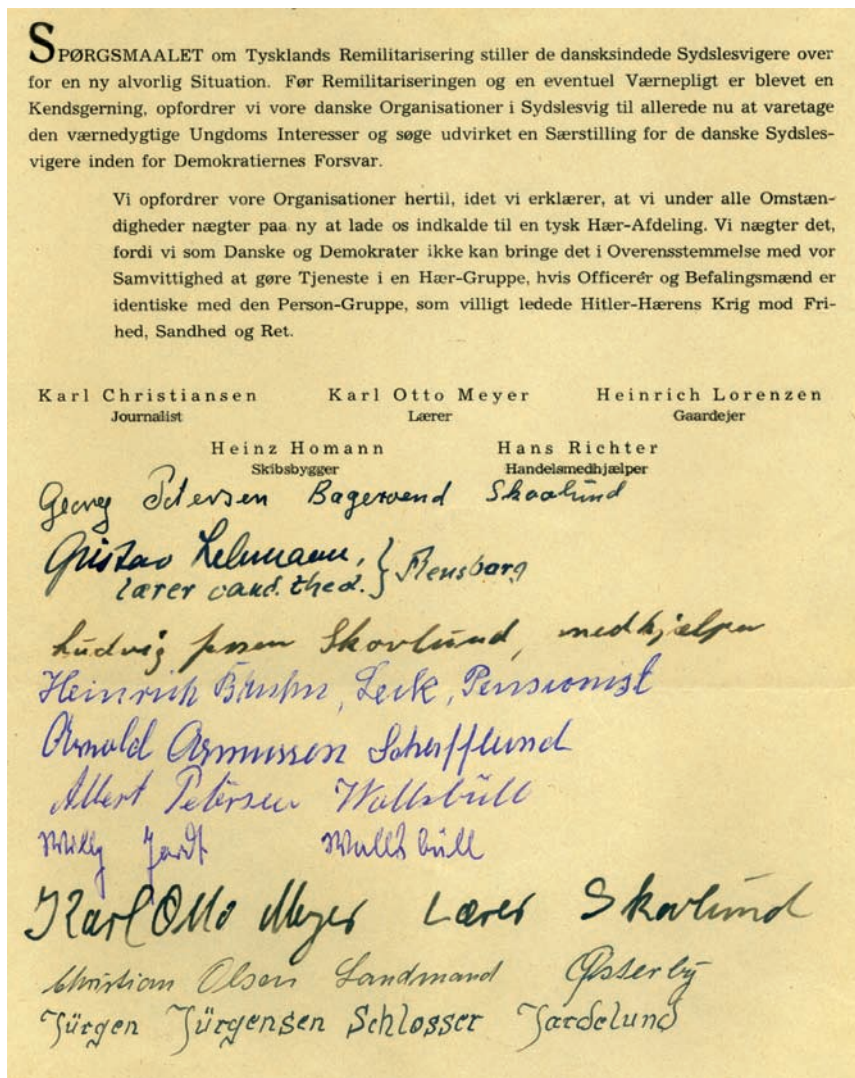 SPØRGSMAALET om Tysklands Remilitarisering stiller de dansksindede Sydslesvigere over
for en ny alvorlig Situation. Før Remilitariseringen og en eventuel Værnepligt er blevet en
Kendsgerning, opfordrer vi vore danske Organisationer i Sydslesvig til allerede nu at varetage
den værnedygtige Ungdoms Interesser og søge udvirket en Særstilling for de danske Sydsles-
vigere inden for Demokratiernes Forsvar.
Vi opfordrer vore Organisationer hertil, idet vi erklærer, at vi under alle Omstæn-
digheder nægter paa ny at lade os indkalde til en tysk Hær-Afdeling. Vi nægter det,
fordi vi som Danske og Demokrater ikke kan bringe det i Overensstemmelse med vor
Samvittighed at gøre Tjeneste i en Hær-Gruppe, hvis Officerér og Befalingsmænd er
identiske med den Person-Gruppe, som villigt ledede Hitler-Hærens Krig mod Fri-
hed, Sandhed og Ret.
Karl Christiansen Karl Otto Meyer Heinrich Lorenzen
Journalist Lærer Gaardejer
Heinz Homann Hans Richter
Skibsbygger Handelsmedhjælper
Georg Petersen Bagersvend Skovlund
Gustav Lehmann, } Flensborg
lærer cand. theol.
Ludvig Skovlund, medhjælper
Heinrich Bruhn, Leck, Pensionist
Arnold Asmussen Schafflund
Albert Petersen Wallsbüll
Willy Wallsbüll
Karl Otto Meyer Lærer Skovlund
Christian Olsen Landmand Østerby
Jürgen Jürgensen Schlosser Jardelund